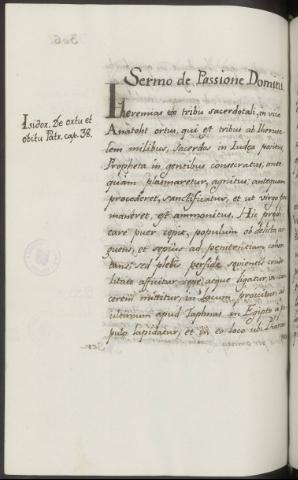 Sermo de Passione Domini
Isidor. De ortu et
obitu Patr. cap. 38.
Iheremias ex tribu sacerdotali, in vico
Anatoht ortus, qui et tribus ab Iherusa-
lem milibus, sacerdos in Iudea positus,
Propheta in gentibus consecratus, ante-
quam plasmaretur, agnitus; antequam
procederet, sanctificatur, et ut virgo per-
maneret, est ammonitus. Hic predi-
care puer cepit, populum ob delicta ar-
guens, et sepius ad penitentiam cohor-
tans; sed plebis perfide sevientis crude-
litate afficitur, sepe atque ligatur, in car-
cerem mititur, in lacum proicitur, ad
ultimum apud Taphnas in Egipto a po-
pulo lapidatur, et in eo loco ubi Pharao